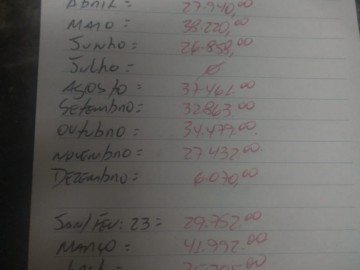 ABRIL = 27.940,00
MAIO = 38.220,00
JUNHO = 26.858,00
JULHO = Ø
AGOSTO = 37.461,00
SETEMBRO = 32.863,00
OUTUBRO = 34.479,00
NOVEMBRO = 27.432,00
DEZEMBRO = 6.070,00
JAN/FEV. 23 = 29.752,00
MARÇO = 41.992,00